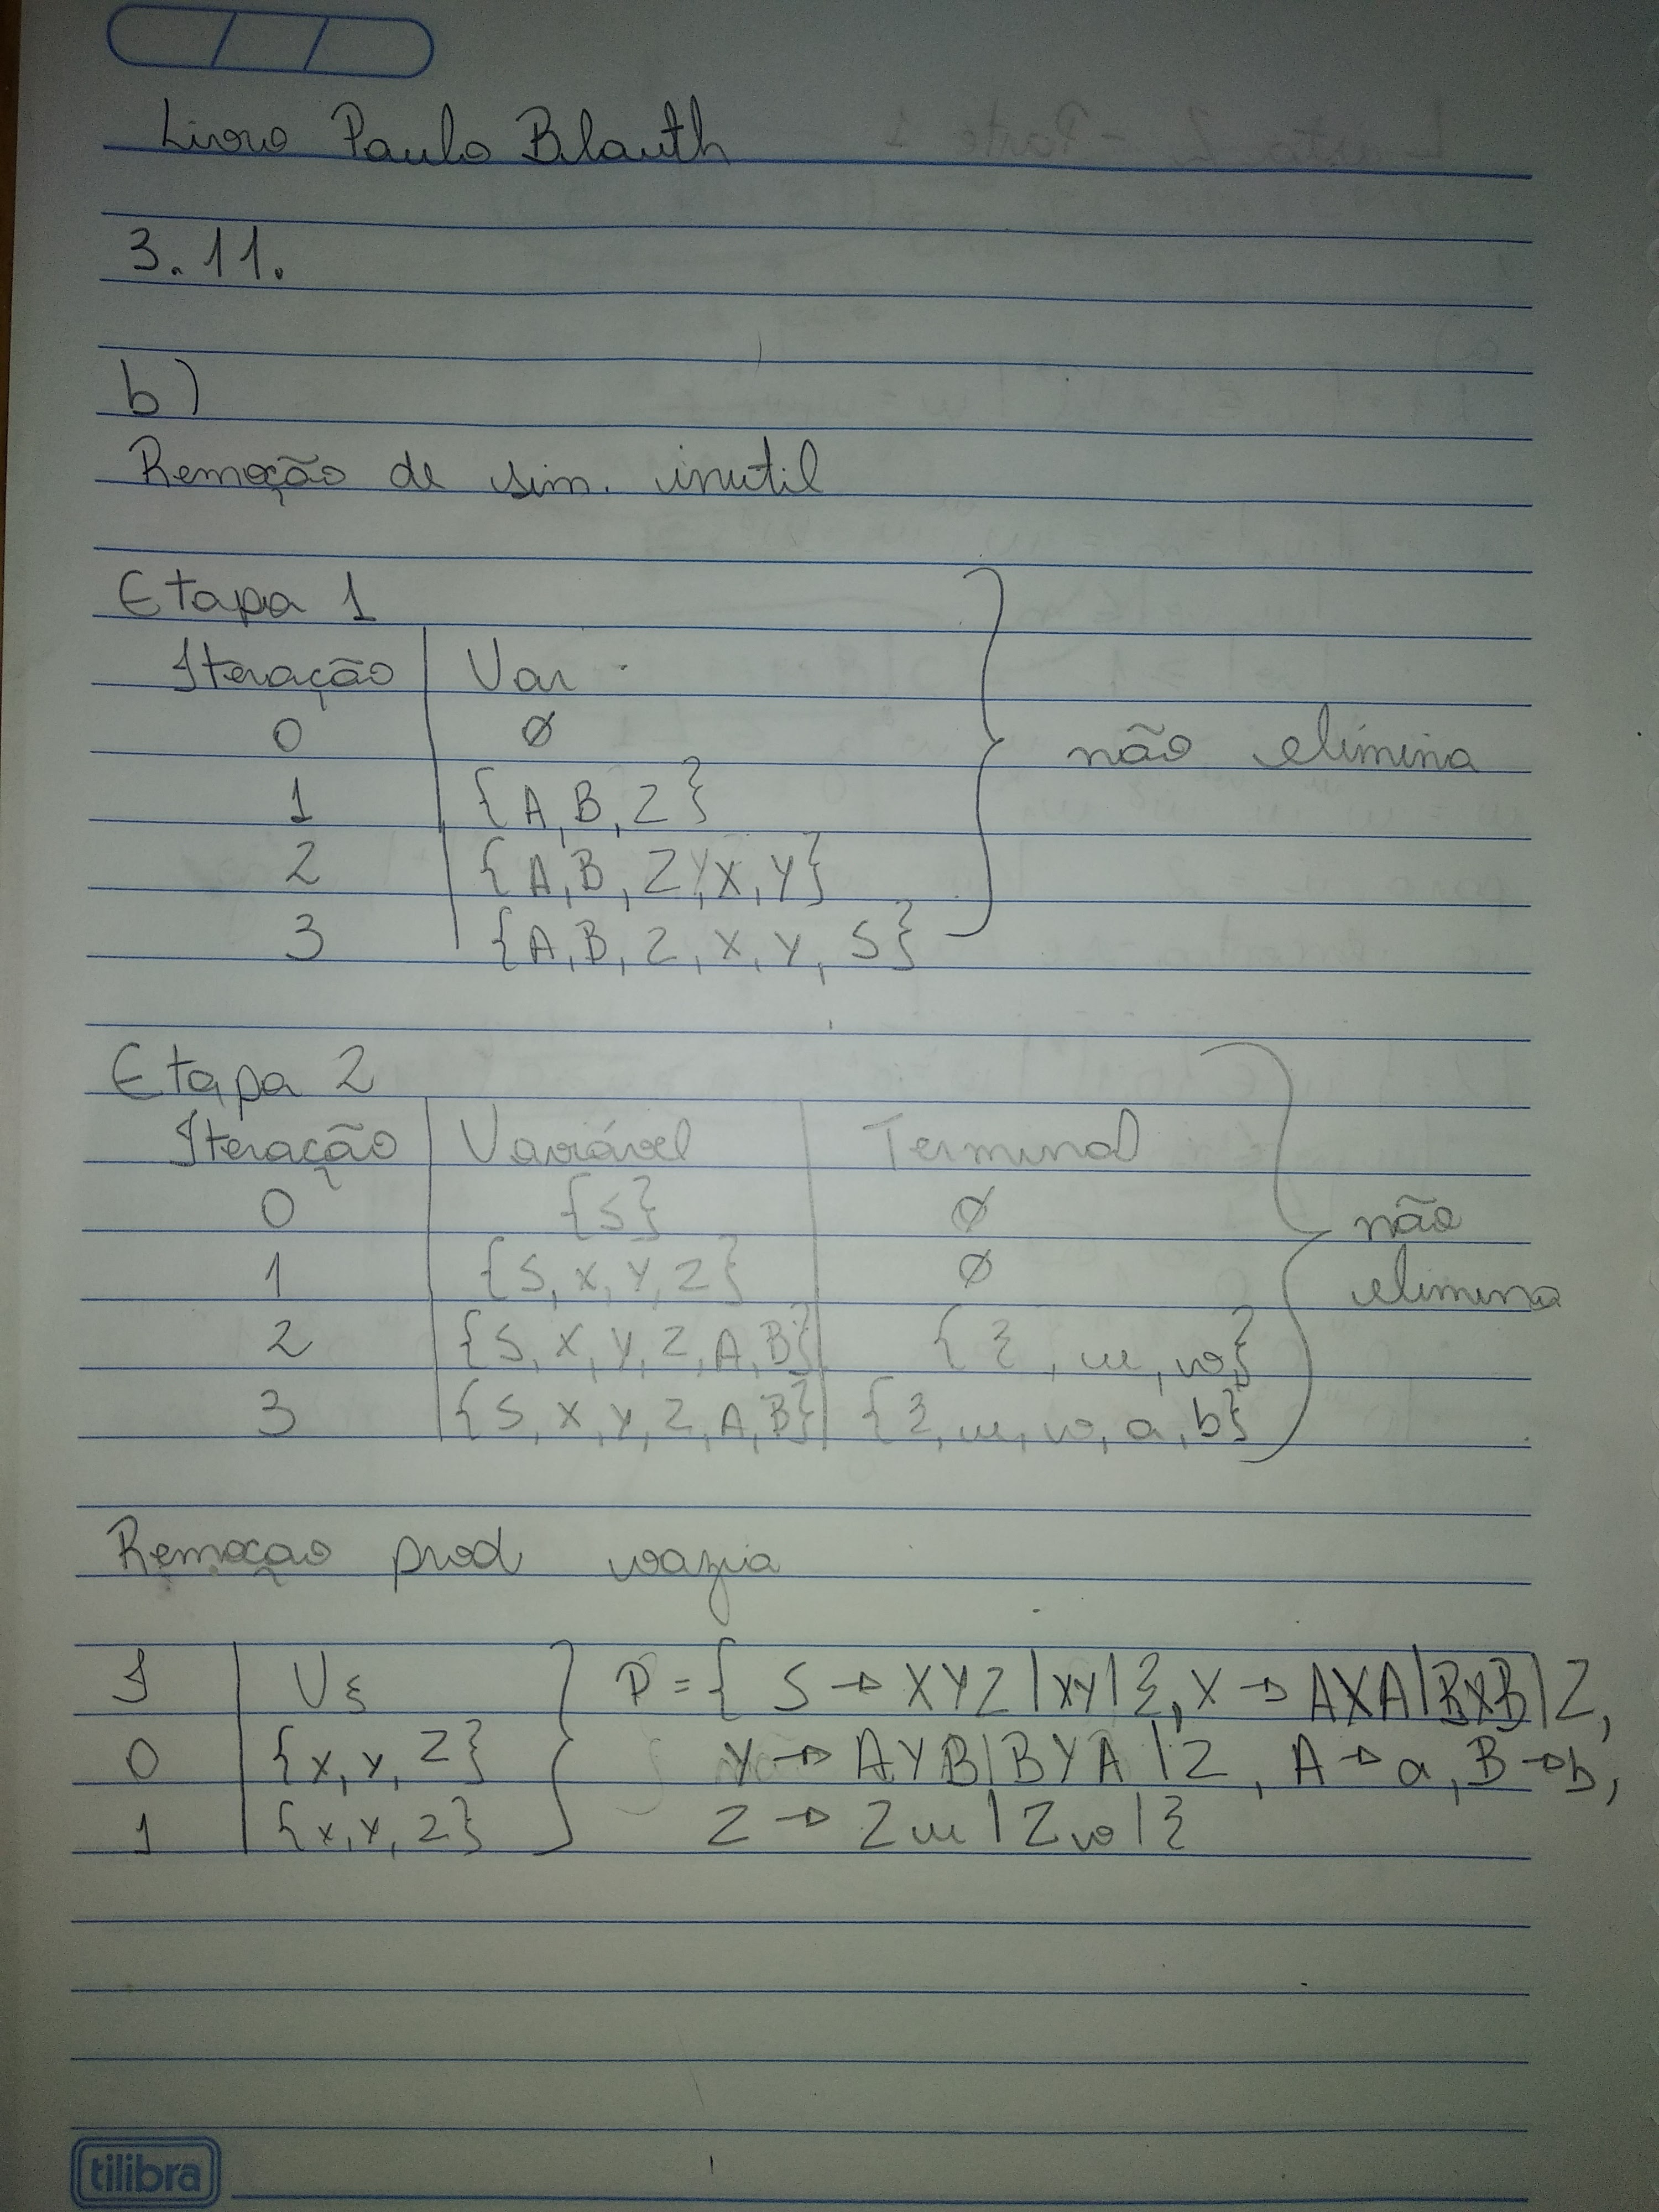 Livro Paulo Blauth
3.11.
b)
Remoção de sim. inutil
Etapa 1
Iteração | Var
0 | ø
1 | {A, B, Z}
2 | {A, B, Z, X, Y}
3 | {A, B, Z, X, Y, S}
não elimina
Etapa 2
Iteração | Variável | Terminal
0 | {S} | ø
1 | {S, X, Y, Z} | ø
2 | {S, X, Y, Z, A, B} | {ξ, u, v}
3 | {S, X, Y, Z, A, B} | {ξ, u, v, a, b}
não
elimina
Remoçao prod vazia
I | Vξ
0 | {X, Y, Z}
1 | {X, Y, Z}
P = { S → XYZ | XY | ξ, X → AXA | BXB | Z,
Y → AYB | BYA | Z, A → a, B → b,
Z → Zu | Zv | ξ
tilibra